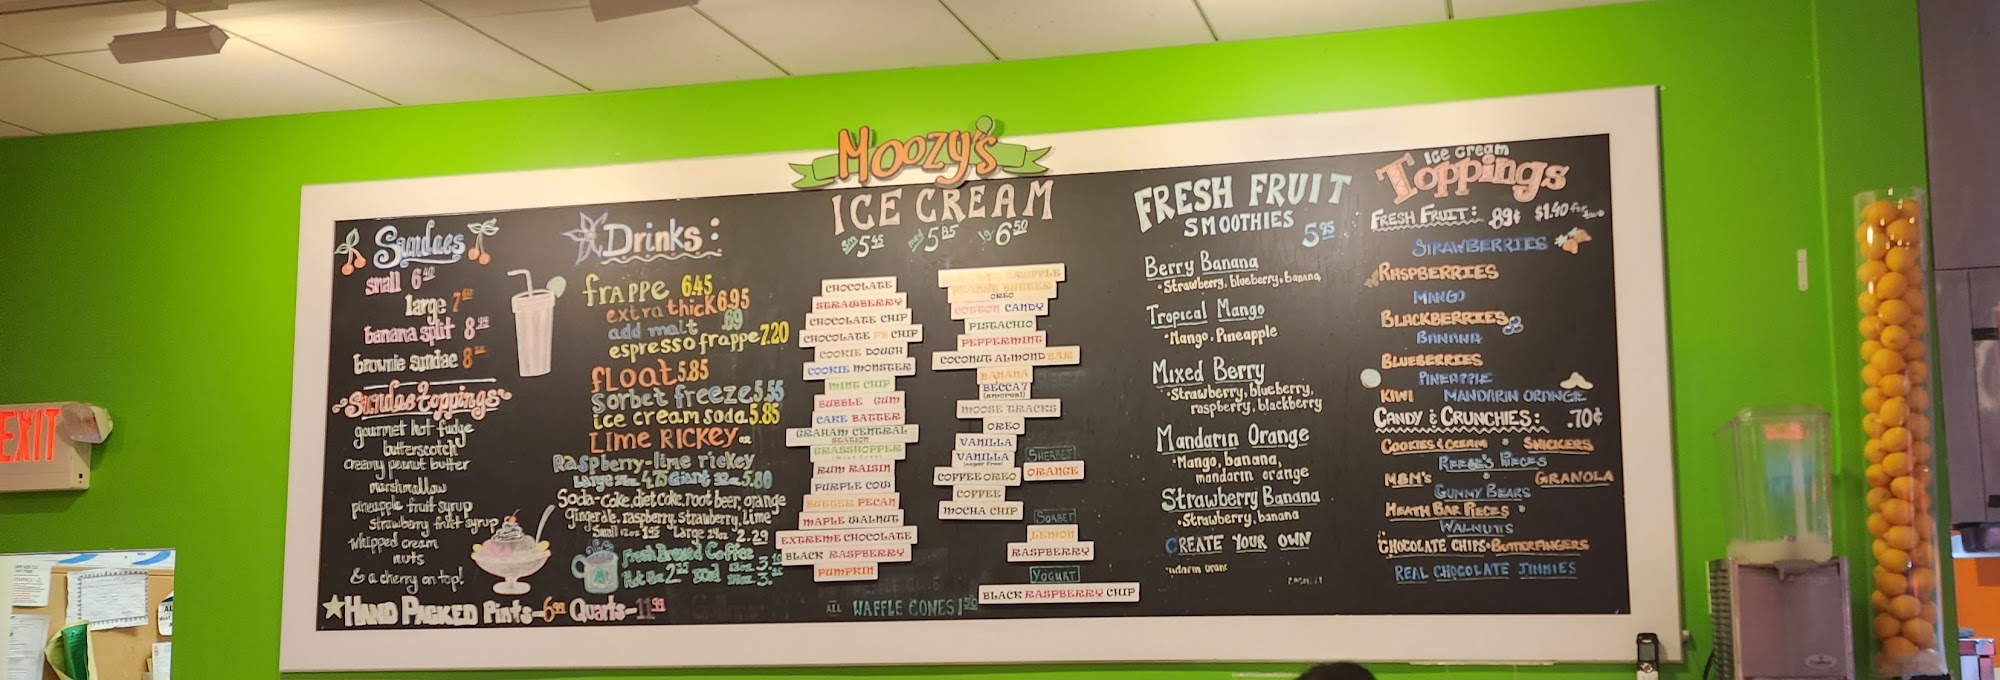 Moozy's
ICE CREAM
sm 5.45 med 5.95 lg 6.50
Sundaes
small 6
large 7
banana split 8
brownie sundae 8
Sundae toppings
gourmet hot fudge
butterscotch
creamy peanut butter
marshmallow
pineapple fruit syrup
strawberry fruit syrup
whipped cream
nuts
& a cherry on top!
HAND PACKED Pints-6.99 Quarts-11.99
Drinks:
frappe 6.45
extra thick 6.95
add malt .69
espresso frappe 7.20
float 5.85
sorbet freeze 5.55
ice cream soda 5.85
LIME RICKEY or
Raspberry-lime rickey
Large 24oz 4.75 Giant 32oz 5.80
Soda-coke, diet coke, root beer, orange
Gingerale, raspberry, strawberry, Lime
Small 12oz 1.95 Large 24oz 2.29
Fresh Brewed Coffee
CHOCOLATE
STRAWBERRY
CHOCOLATE CHIP
CHOCOLATE PB CHIP
COOKIE DOUGH
COOKIE MONSTER
MINT CHIP
BUBBLE GUM
CAKE BATTER
GRAHAM CENTRAL
STATION
GRASSHOPPER
RUM RAISIN
PURPLE COW
BUTTER PECAN
MAPLE WALNUT
EXTREME CHOCOLATE
BLACK RASPBERRY
PUMPKIN
PEANUT BUTTER
OREO
COTTON CANDY
PISTACHIO
PEPPERMINT
COCONUT ALMOND BAR
BANANA
BECCA 7
(smores!)
MOOSE TRACKS
OREO
VANILLA
VANILLA
(sugar free)
COFFEE OREO
COFFEE
MOCHA CHIP
SHERBET
ORANGE
SORBET
LEMON
RASPBERRY
YOGURT
BLACK RASPBERRY CHIP
ALL WAFFLE CONES 1.50
FRESH FRUIT
SMOOTHIES 5.95
Berry Banana
• Strawberry, blueberry, banana
Tropical Mango
• Mango, Pineapple
Mixed Berry
• Strawberry, blueberry,
raspberry, blackberry
Mandarin Orange
• Mango, banana,
mandarin orange
Strawberry Banana
• Strawberry, banana
CREATE YOUR OWN
Ice Cream
Toppings
FRESH FRUIT: .89¢ $1.40 for two
STRAWBERRIES
RASPBERRIES
MANGO
BLACKBERRIES
BANANA
BLUEBERRIES
PINEAPPLE
KIWI MANDARIN ORANGE
CANDY & CRUNCHIES: .70¢
COOKIES & CREAM • SNICKERS
REESE'S PIECES
M&M's • GRANOLA
GUMMY BEARS
HEATH BAR PIECES •
WALNUTS
CHOCOLATE CHIPS • BUTTERFINGERS
REAL CHOCOLATE JIMMIES
EXIT